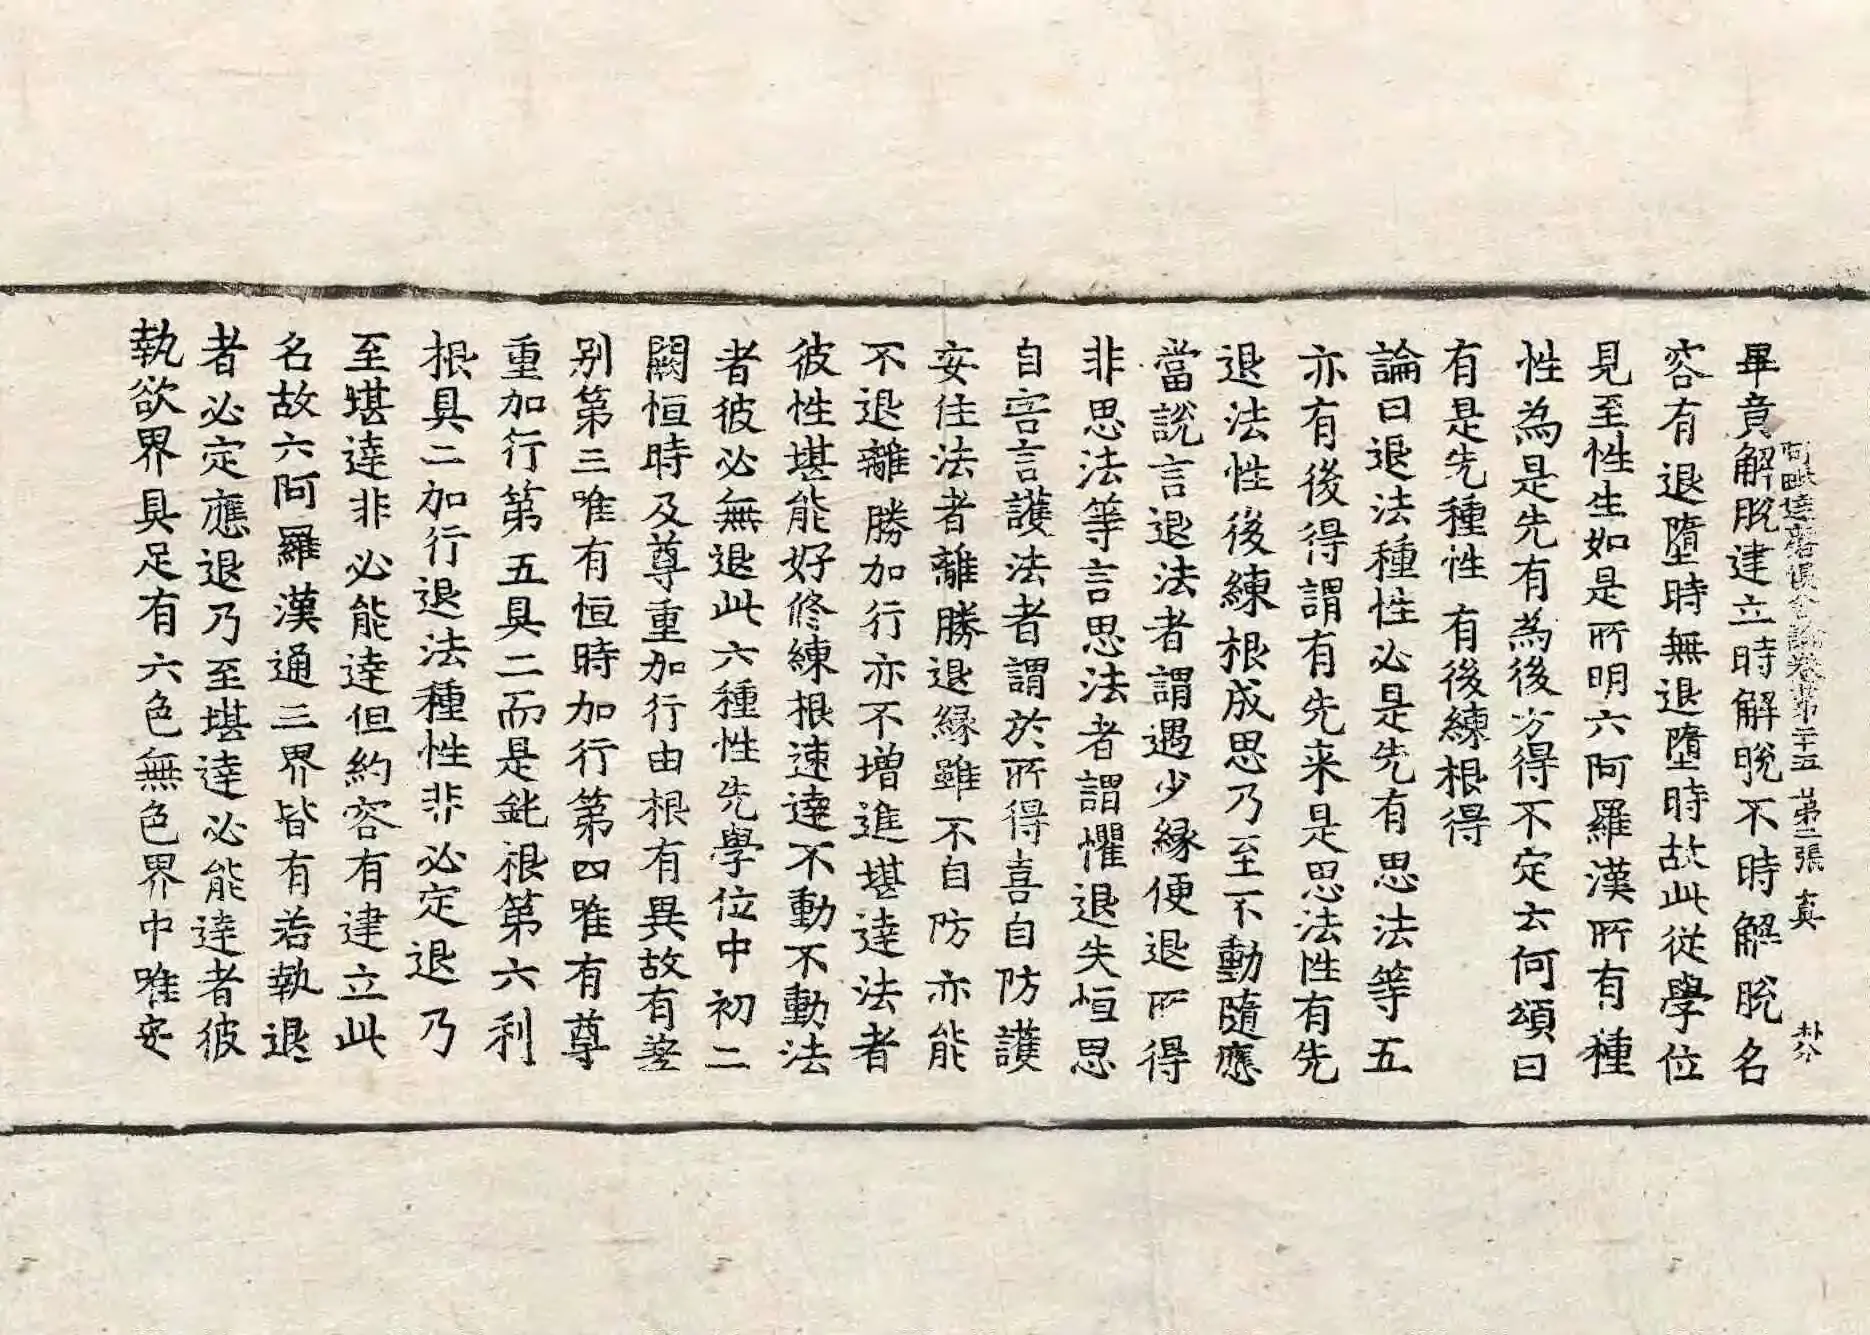 阿毗達磨俱舍論卷第二十五 第二張 真
朴公
畢竟解脫建立時解脫不時解脫名
容有退墮時無退墮時故此從學位
見至性生如是所明六阿羅漢所有種
性為是先有為後方得不定云何頌曰
有是先種性 有後練根得
論曰退法種性必是先有思法等五
亦有後得謂有先来是思法性有先
退法性後練根成思乃至不動隨應
當說言退法者謂遇少緣便退所得
非思法等言思法者謂懼退失恒思
自害言護法者謂於所得喜自防護
安住法者離勝退緣雖不自防亦能
不退離勝加行亦不增進堪達法者
彼性堪能好修練根速達不動不動法
者彼必無退此六種性先學位中初二
闕恒時及尊重加行由根有異故有差
別第三唯有恒時加行第四唯有尊
重加行第五具二而是鈍根第六利
根具二加行退法種性非必定退乃
至堪達非必能達但約容有建立此
名故六阿羅漢通三界皆有若執退
者必定應退乃至堪達必能達者彼
執欲界具足有六色無色界中唯安